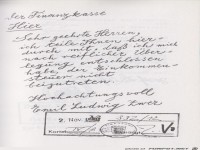 Der Finanzkasse
Hier
Sehr geehrte Herren,
ich teile Ihnen hier-
durch mit, daß ich mich
nach reiflicher Über-
legung entschlossen
habe, der Einkommen-
steuer nicht
beizutreten.
Hochachtungsvoll
Emil Ludwig
2. Nov.